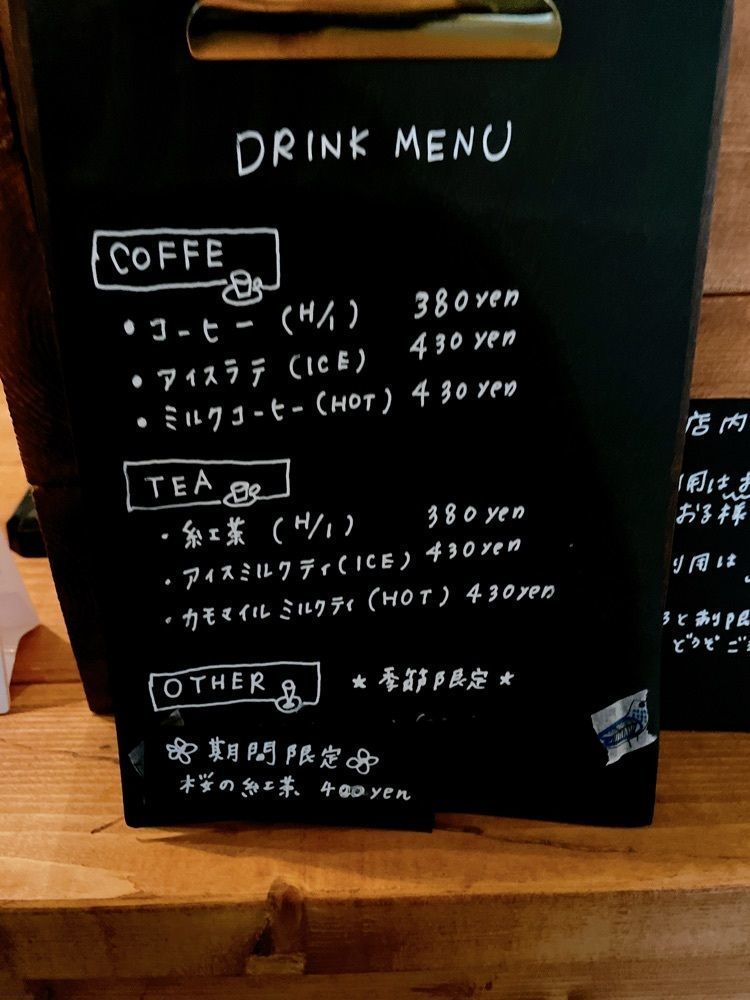 DRINK MENU
COFFE
・コーヒー (H/I) 380yen
・アイスラテ (ICE) 430yen
・ミルクコーヒー(HOT) 430yen
TEA
・紅茶 (H/I) 380yen
・アイスミルクティ(ICE) 430yen
・カモマイルミルクティ(HOT) 430yen
OTHER ★季節限定★
期間限定
桜の紅茶 400yen
店内
用は
お子様
利用は
どうぞご